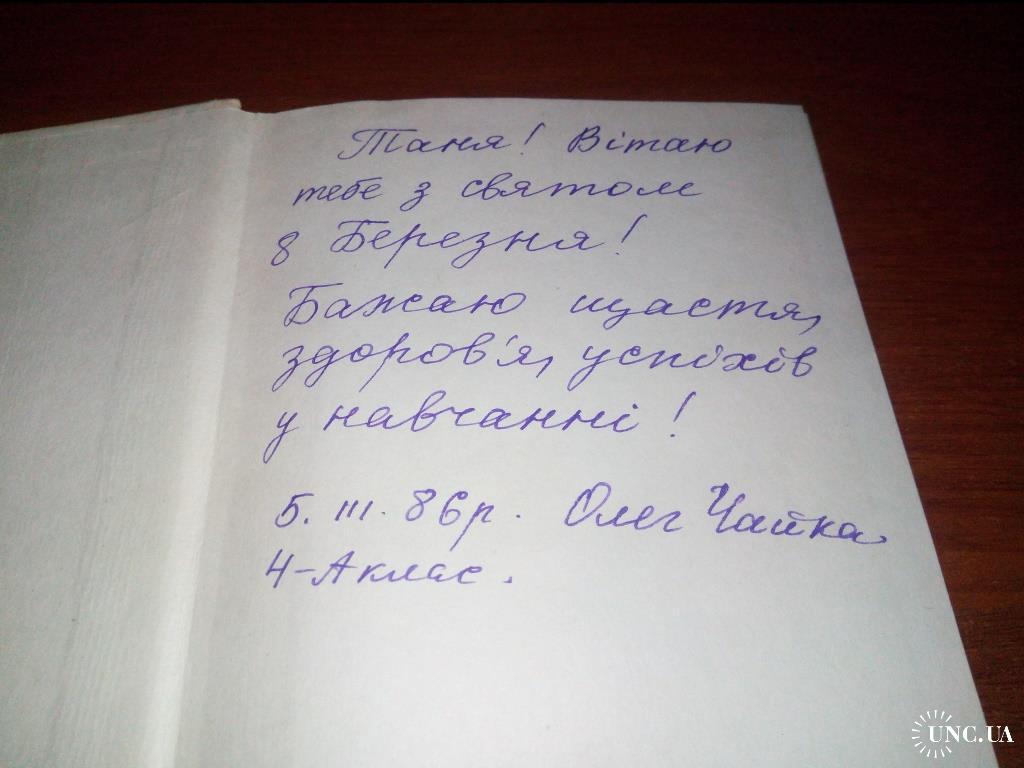 Таня! Вітаю
тебе з святом
8 Березня!
Бажаю щастя,
здоров'я, успіхів
у навчанні!
5. III. 86р. Олег Чайка
4-А клас.
UNC.UA